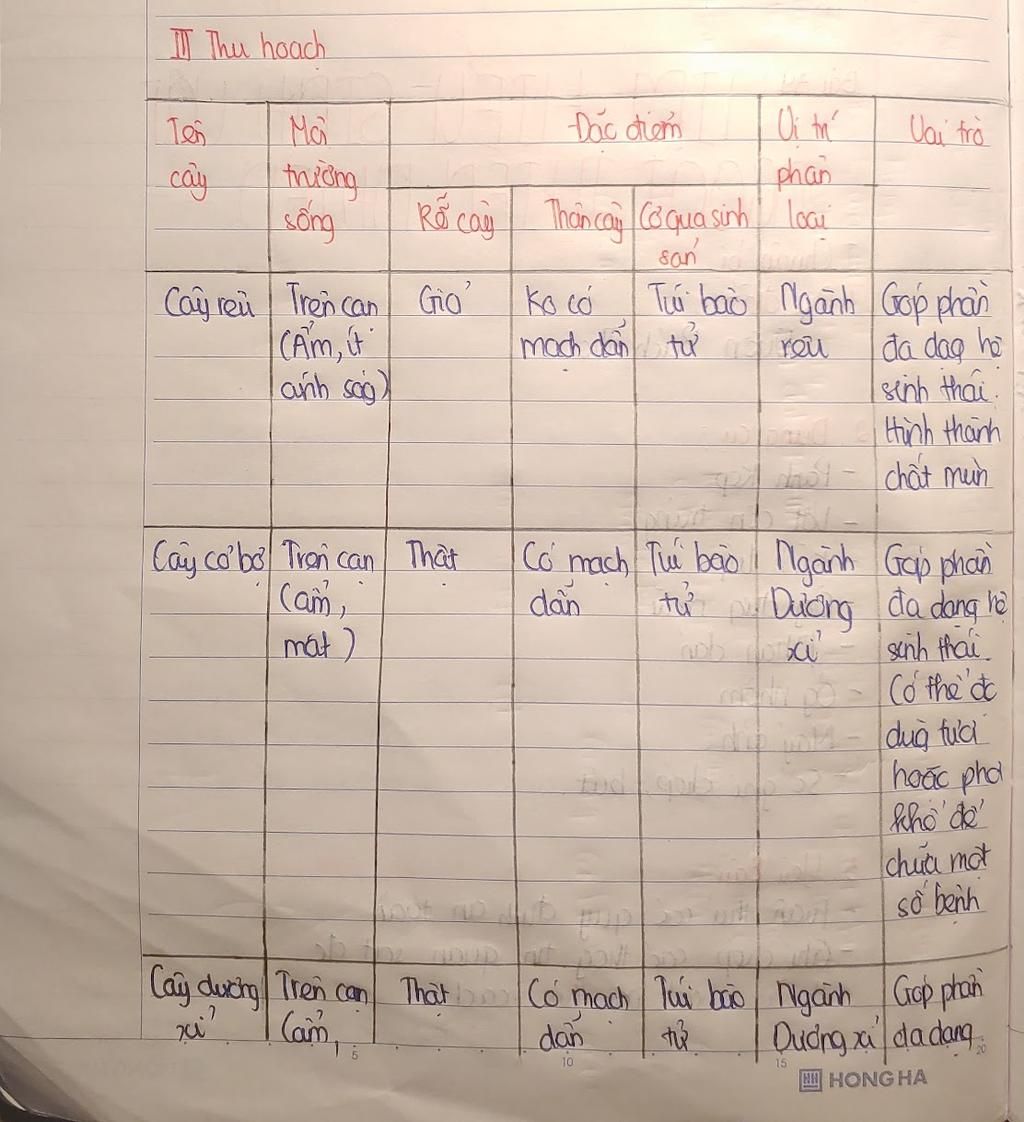 III Thu hoạch
Tên cây
Môi trường sống
Đặc điểm
Vị trí phân loại
Vai trò
Rễ cây
Thân cây
Cơ qua sinh sản
Cây rêu
Trên cạn (Ẩm, ít ánh ság)
Giả
Ko có mạch dẫn
Túi bào tử
Ngành rêu
Góp phần đa dạg hệ sinh thái. Hình thành chất mùn
Cây cỏ bợ
Trên cạn (ẩm, mát)
Thật
Có mạch dẫn
Túi bào tử
Ngành Dương xỉ
Góp phần đa dạng hệ sinh thái. Có thể đc dug tươi hoặc phơi khô để chữa một số bệnh
Cây dương xỉ
Trên cạn (ẩm,
Thật
Có mạch dẫn
Túi bào tử
Ngành Dương xỉ
Góp phần đa dạng
5
10
15
20
HH HONG HA